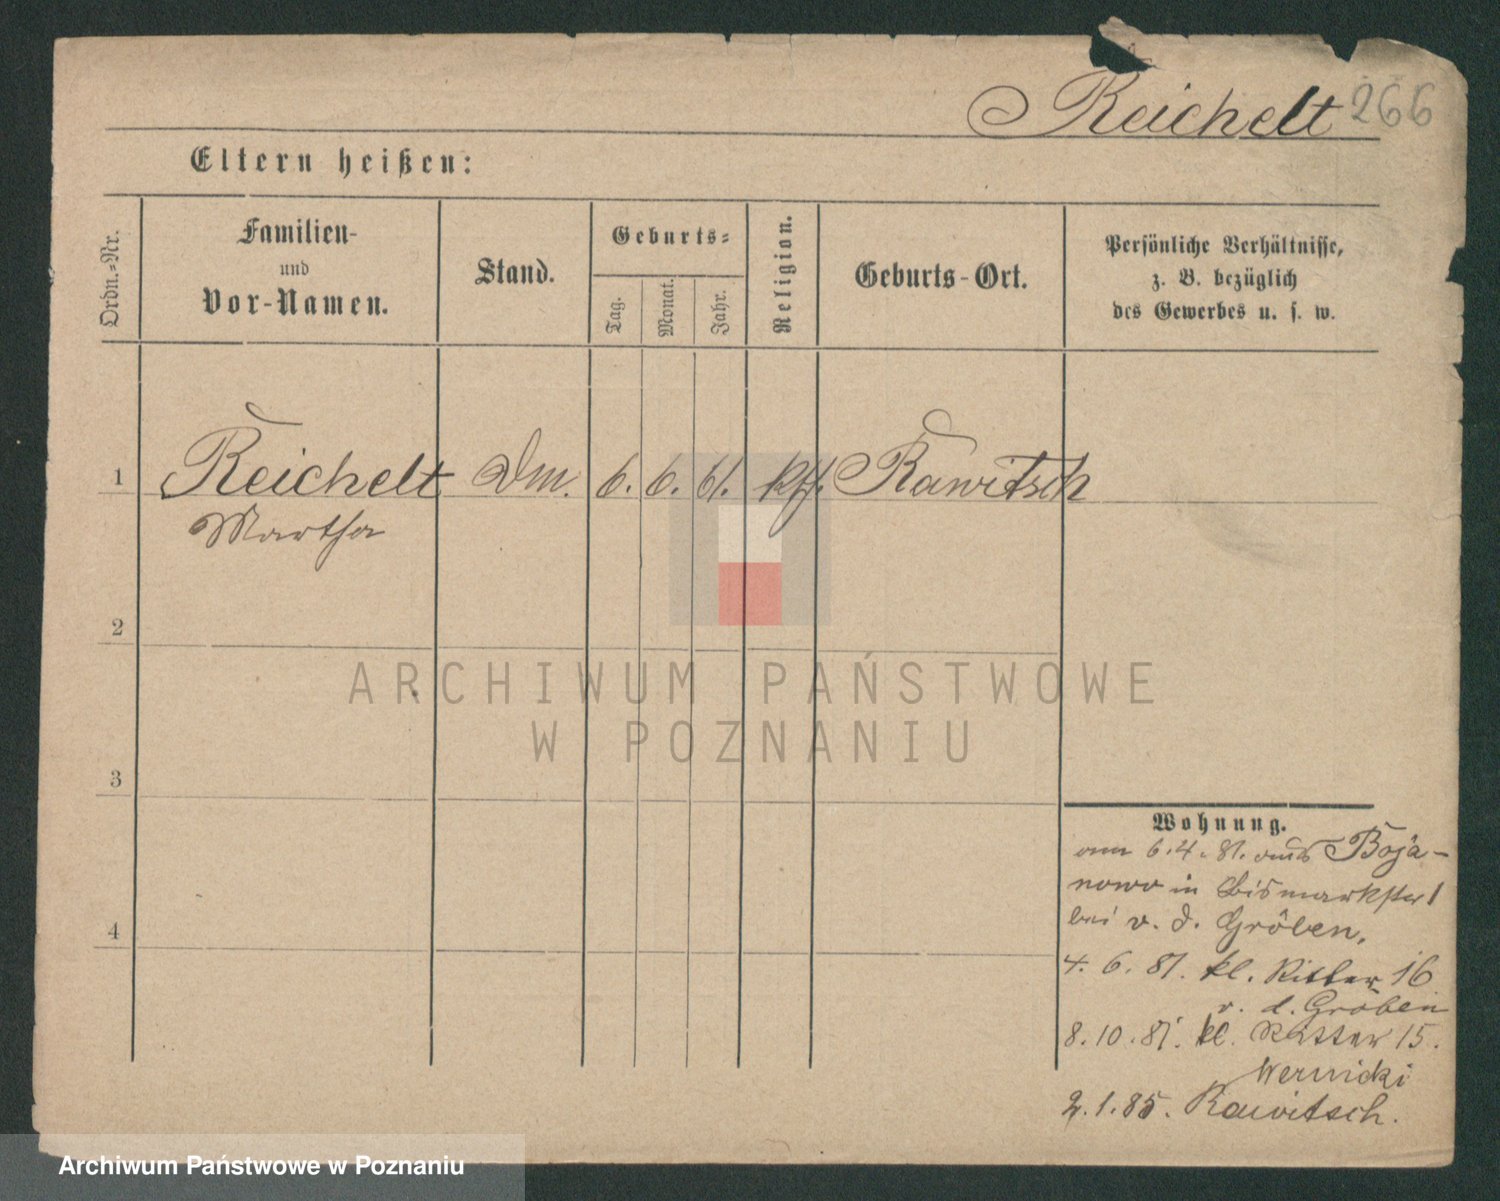 Reichelt 266
Eltern heißen:
Ordn.=Nr.
Familien-
und
Vor-Namen.
Stand.
Geburts=
Tag.
Monat.
Jahr.
Religion.
Geburts-Ort.
Persönliche Verhältnisse,
z. B. bezüglich
des Gewerbes u. s. w.
1 Reichelt Dm. 6. 6. 61. Rawitsch
Martha
2
ARCHIWUM PAŃSTWOWE
W POZNANIU
3
Wohnung.
am 6.4.81. aus Boja-
nowo in Bismarkstr 1
bei v. d. Gröben,
4
4. 6. 81. kl. Ritter 16
v. d. Gröben
8.10.81. kl. Ritter 15.
Wernicki
2.1.85. Rawitsch.
Archiwum Państwowe w Poznaniu